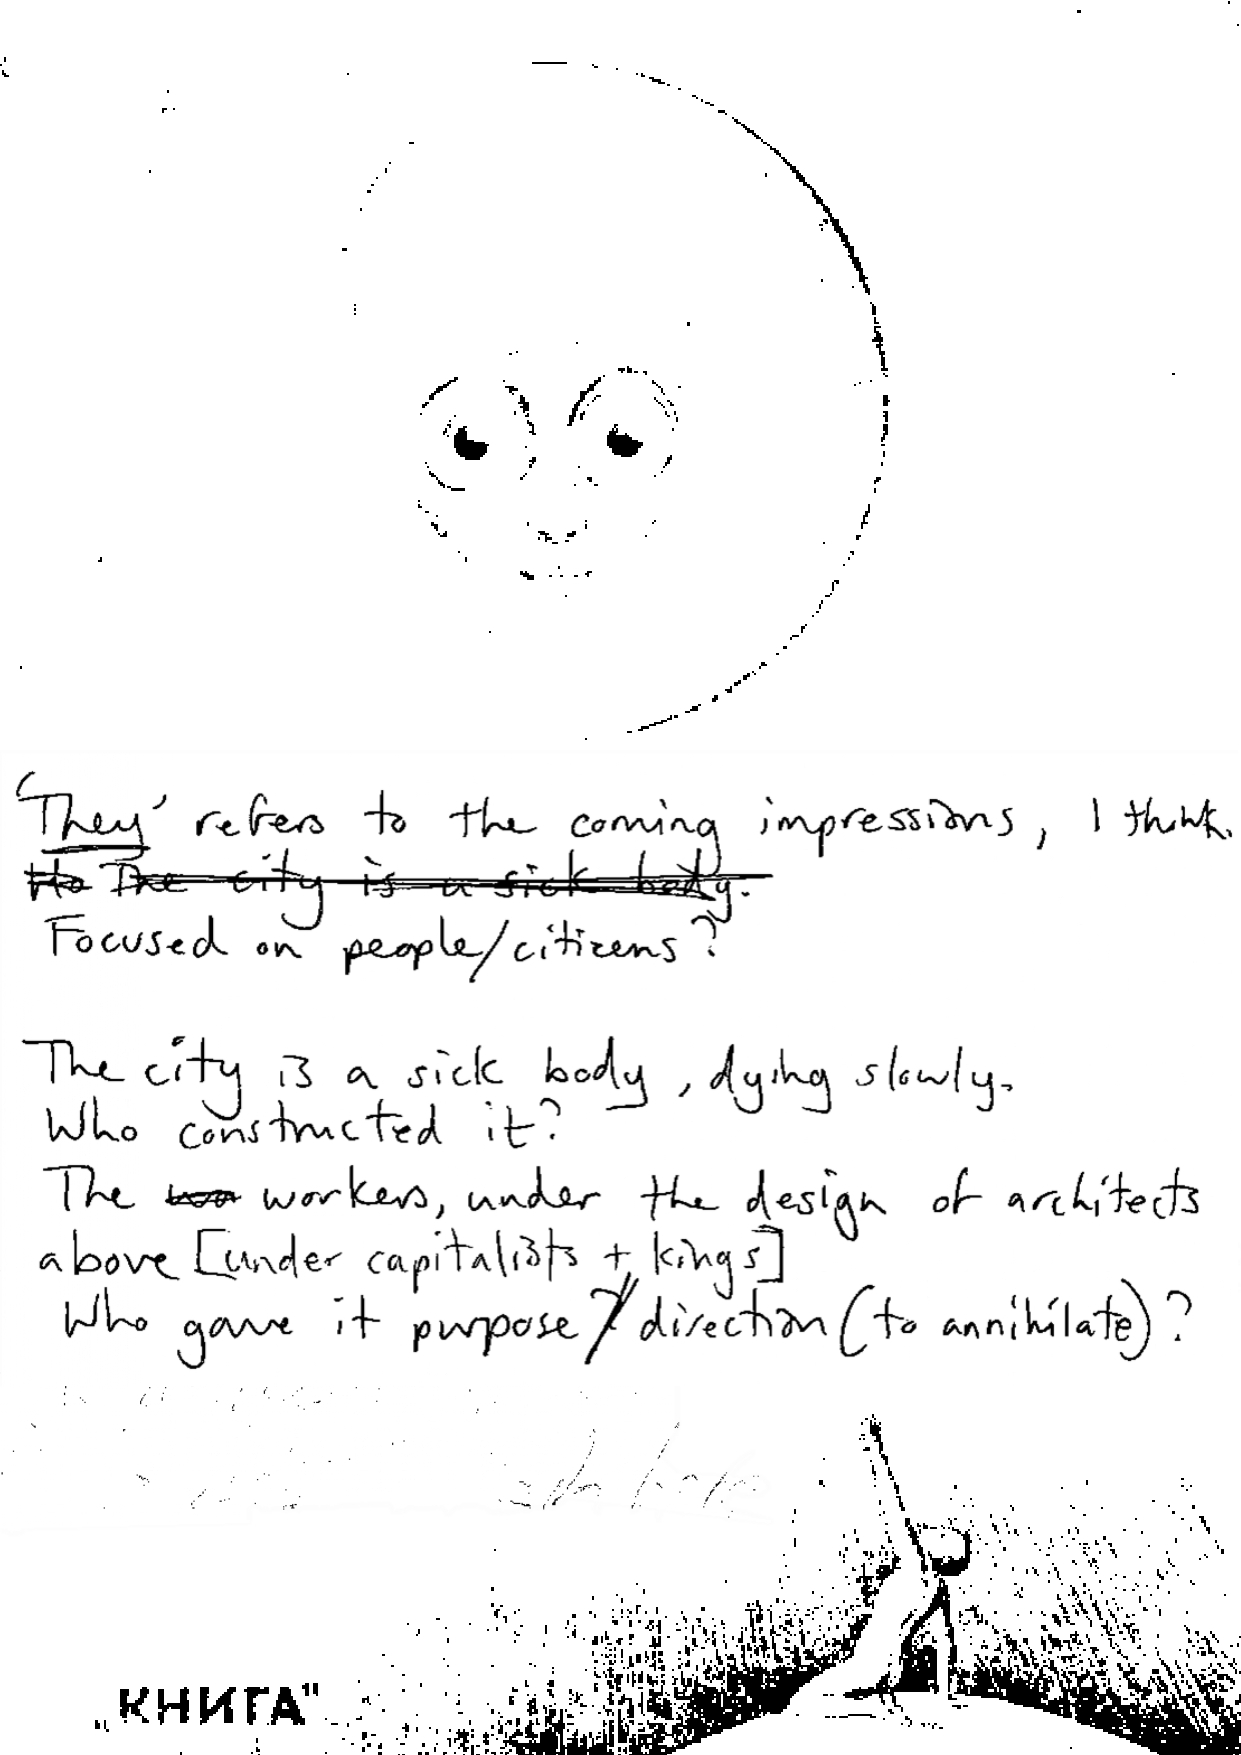 'They' refers to the coming impressions, I think.
The city is a sick body.
Focused on people/citizens?
The city is a sick body, dying slowly.
Who constructed it?
The workers, under the design of architects
above [under capitalists + kings]
Who gave it purpose?/direction (to annihilate)?
„КНИГА"